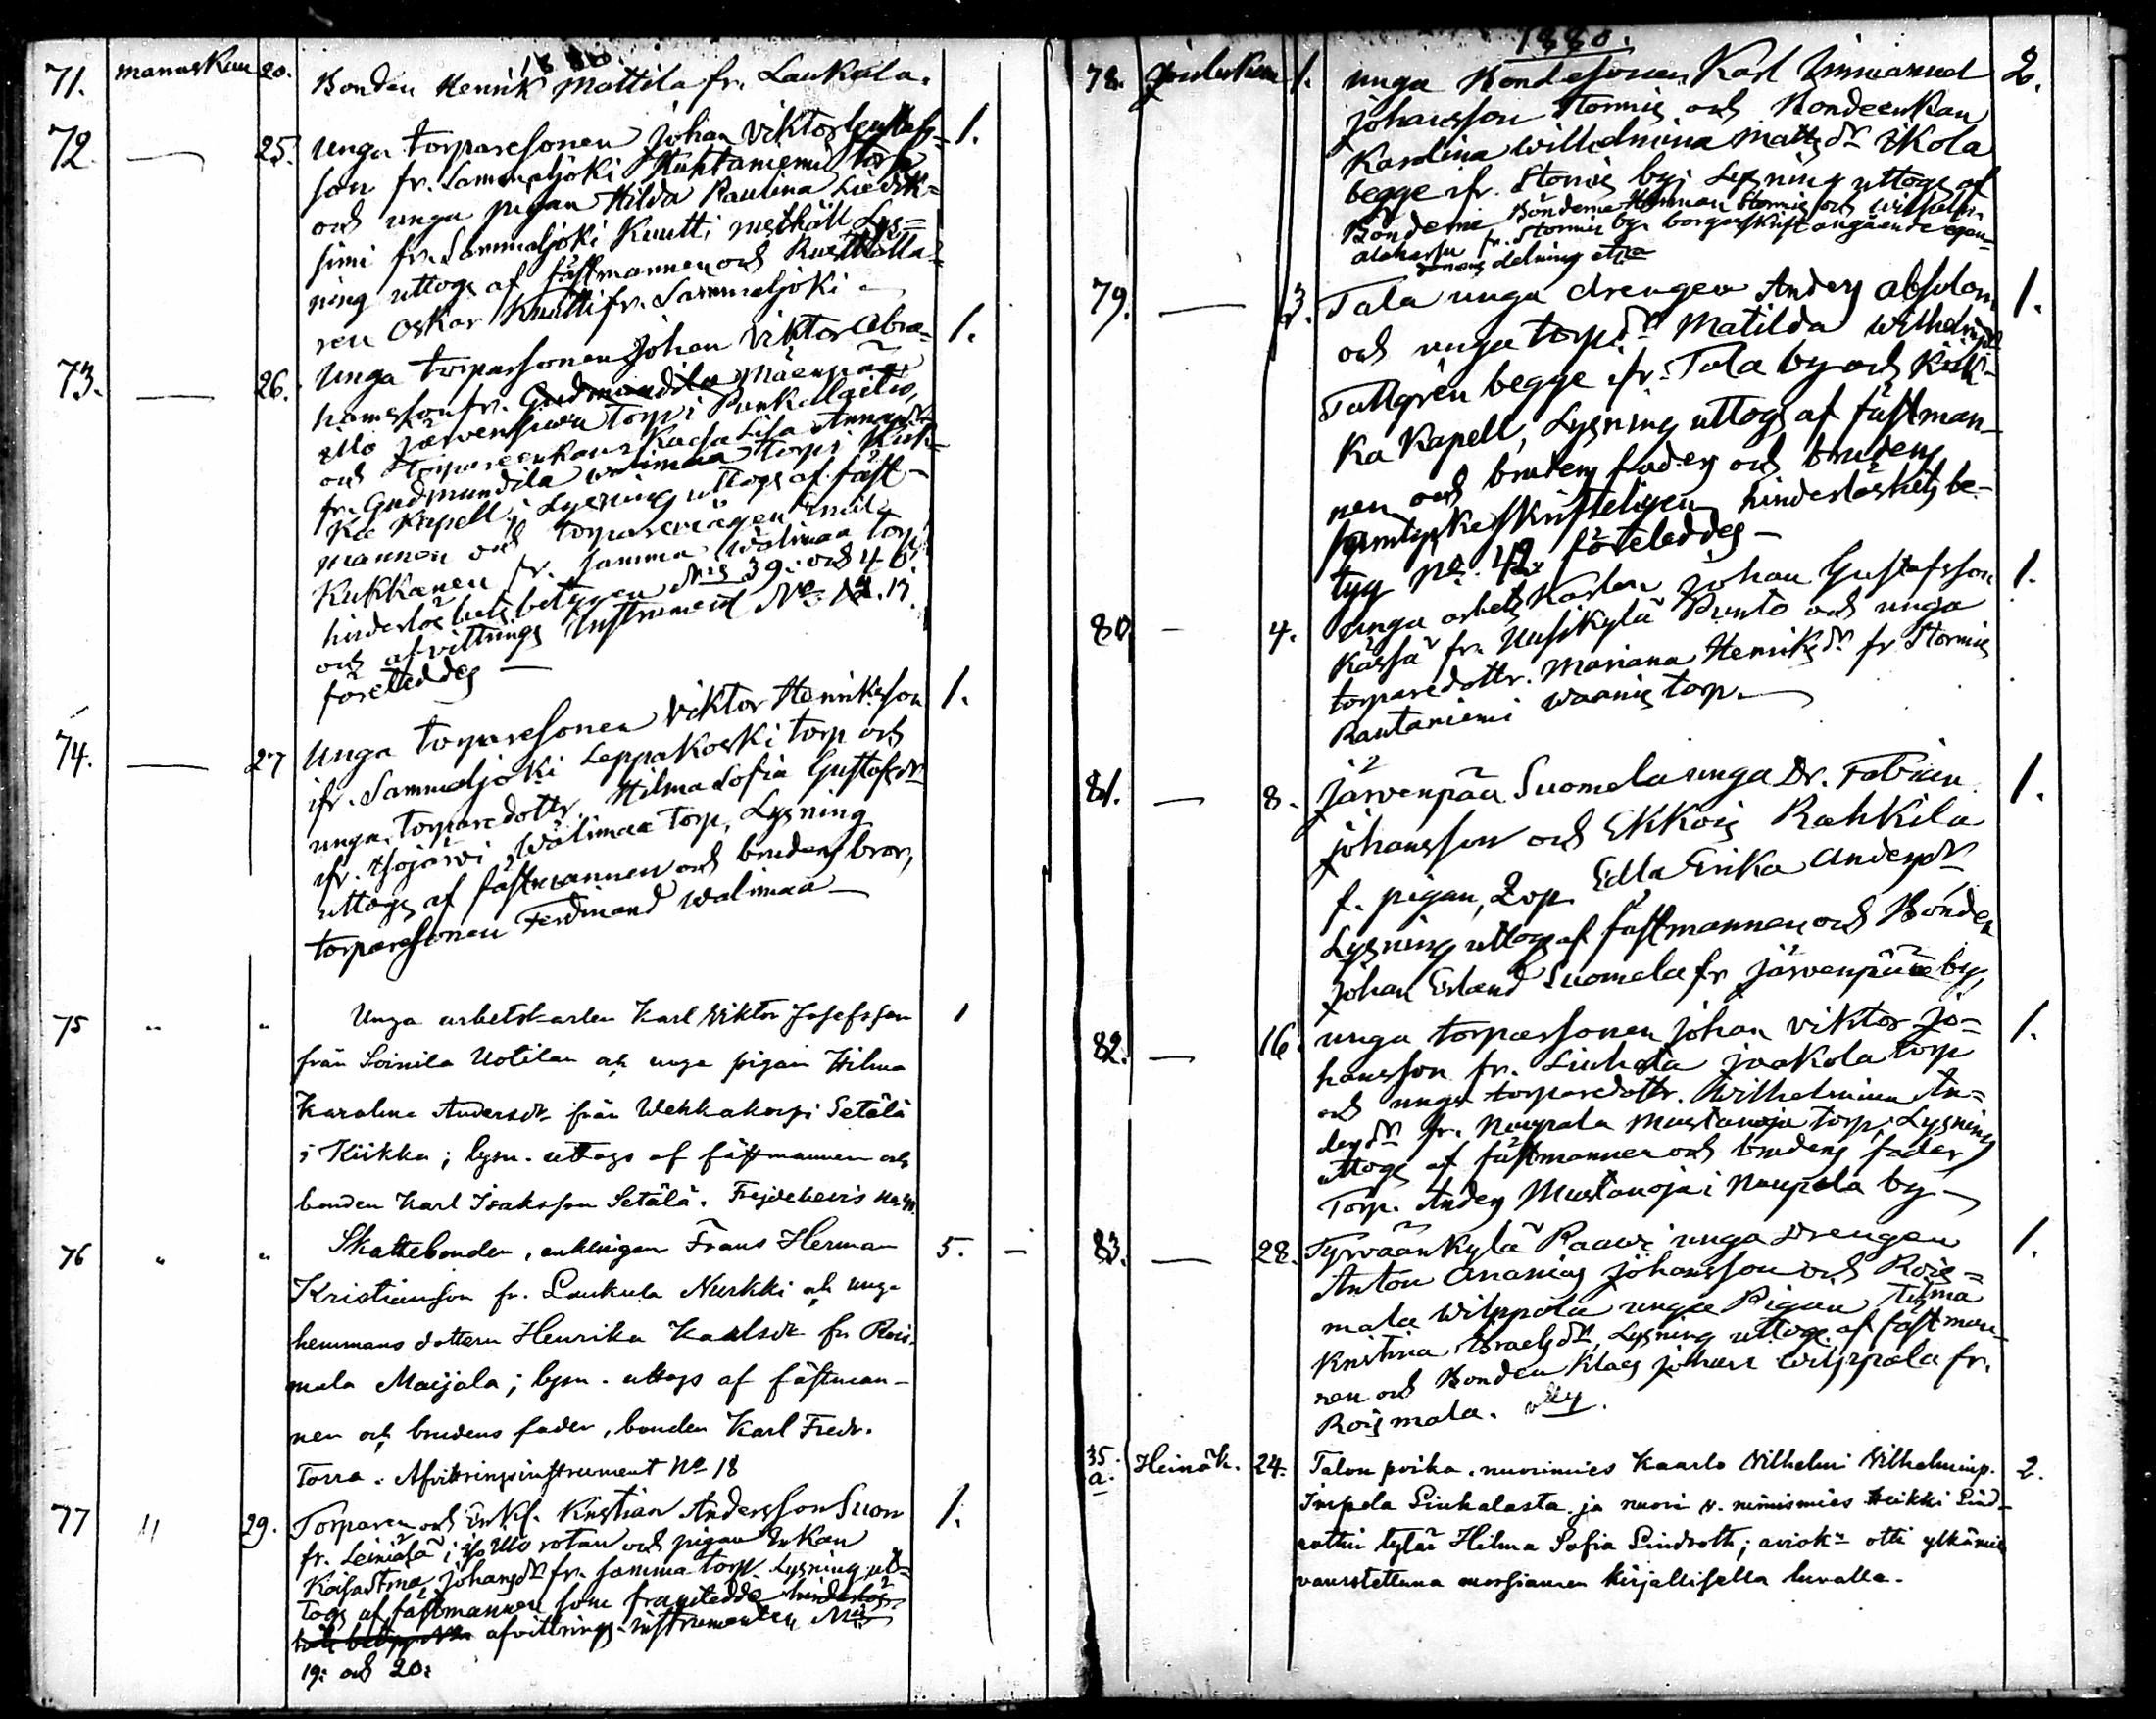 1880.
71. marraskuu 20. Bonden Henrik Mattila fr. Laukula.
72. — 25. Unga torparesonen Johan Viktor Gustafs- 1.
son fr. Sammaljoki Huhtaniemi torp
och unga pigan Hilda Paulina Liedik-
simi fr. Sammaljoki Kuutti rusthåll Lys-
ning uttogs af fästmannen och Rusthålla-
ren Oskar Kuutti fr. Sammaljoki —
73. — 26. Unga torparsonen Johan Viktor Abra- 1.
hamsson fr. Gudmundila Mäenpää
Illo Järvensivu Torpi Punkalaitio,
och torpareenkan Kaisa Lisa Annasdr
fr. Gudmundila Wälimaa torp i Kiik-
ka Kapell; Lysning uttogs af fäst-
mannen och torparemågen Emil
Kukkanen fr. samma Wälimaa torp
hinderlöshets betygen N:is 39: och 40:
och afvittrings Instrument No 17.
företeddes —
74. — 27 Unga torparesonen Viktor Henriksson 1.
ifr. Sammaljoki Leppäkoski torp och
unga torparedottr. Hilma Sofia Gustafsdr
ifr. Wälimaa torp, Lysning
uttogs af fästmannen och brudens bror,
torparesonen Ferdinand Walimaa —
75 " " Unga arbetskarlen Karl Viktor Josefsson 1
från Soinila Uotilan och unga pigan Hilma
Karolina Andersdr från Wehkakorpi Setälä
i Kiikka; lysn. uttogs af fästmannen och
bonden Karl Isaksson Setälä. Frejdebevis
76 " " Skattebonden, enklingen Frans Herman 5. —
Kristiansson fr. Laukula Nurkki och unga
hemmans dottern Henrika Karlsdr fr Rois-
mala Maijala; lysn. uttogs af fästman-
nen och brudens fader, bonden Karl Fredr.
Torra. Afvittringsinstrument No 18
77 " 29. Torparen och Enkl. Kristian Andersson Suon 1.
fr. Leiniälä i rotan och pigan Enkan
Kaisa Stina Johansdr fr. samma torp. Lysning ut-
togs af fästmannen som framtedde hinderlös-
afvittrings-instrumenten N:is
19: och 20:
1880.
78. Joulukuu 1. unga Bondesonen Karl Immanuel 2.
Johansson Stormis och Bondeenkan
Karolina Wilhelmina Mattsdr Ikola
begge ifr. Stormis by; Lysning uttogs af
Bönderne Herman Stormis och Wilhelm
Bonderne fr. Stormis by. borgesskrift angående egen-
alaharju domens delning etc
79. — 3. Tala unga drengen Anders Absalon 1.
och unga torpdr Matilda Wilhelmsdr
Tallgrén begge ifr. Tala by och Kiik-
ka Kapell, Lysning uttogs af fästman-
nen och brudens faders och brudens
samtycke skrifteligen, hinderlöshets be-
tyg No. 42 företeddes —
80 — 4. Unga arbetskarlen Johan Gustafsson 1.
Kässä fr. Uusikylä Punto och unga
torparedottr. Mariana Henriksdr fr Stormis
Rautaniemi waanis torp. —
81. — 8. Järvenpää Suomela unga Dr. Fabian 1.
Johansson och Ekkois Rahkila
f. pigan, Edla Erika Andersdr
Lysning uttogs af fästmannen och Bonden
Johan Erland Suomela fr Järvenpää by,
82. — 16. unga torparesonen Johan Viktor Jo- 1.
hansson fr. Liuhala Jaakola torp
och unga torparedottr. Wilhelmina An-
dersdr fr. Nuupala Mustanoja torp; Lysning
uttogs af fästmannen och brudens fader
Torp. Anders Mustanoja i Nuupala by —
83. — 28. Tyrväänkylä Raawi unga Drengen 1.
Anton Ananias Johansson och Rois-
mala Wilppala unga Pigan Hilma
Kristina Israelsdr, Lysning uttogs af fästman-
nen och Bonden Klas Johan Wilppala fr.
Roismala.
35. a. Heinäk. 24. Talon poika, nuorimies Kaarlo Wilhelmi Wilhelminp. 2.
Impola Liuhalasta ja nuori v. nimismies Heikki Lind-
rothin tytär Hilma Sofia Lindroth; aviok:n otti ylkämies
varustettuna morsiamen kirjallisella luvalla.